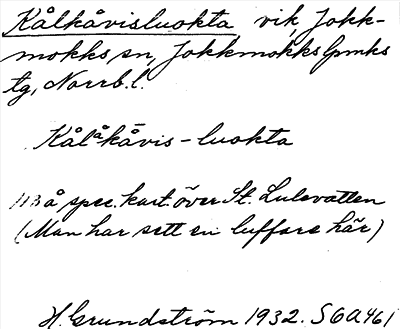 Kålkåvisluokta vik, Jokk-
mokks sn, Jokkmokks lpmks
tg, Norrb. l.
Kålåkåvis-luokta
113 å spec. kart. över St. Lulevatten
(Man har sett en luffare här)
H. Grundström 1932. SOA461